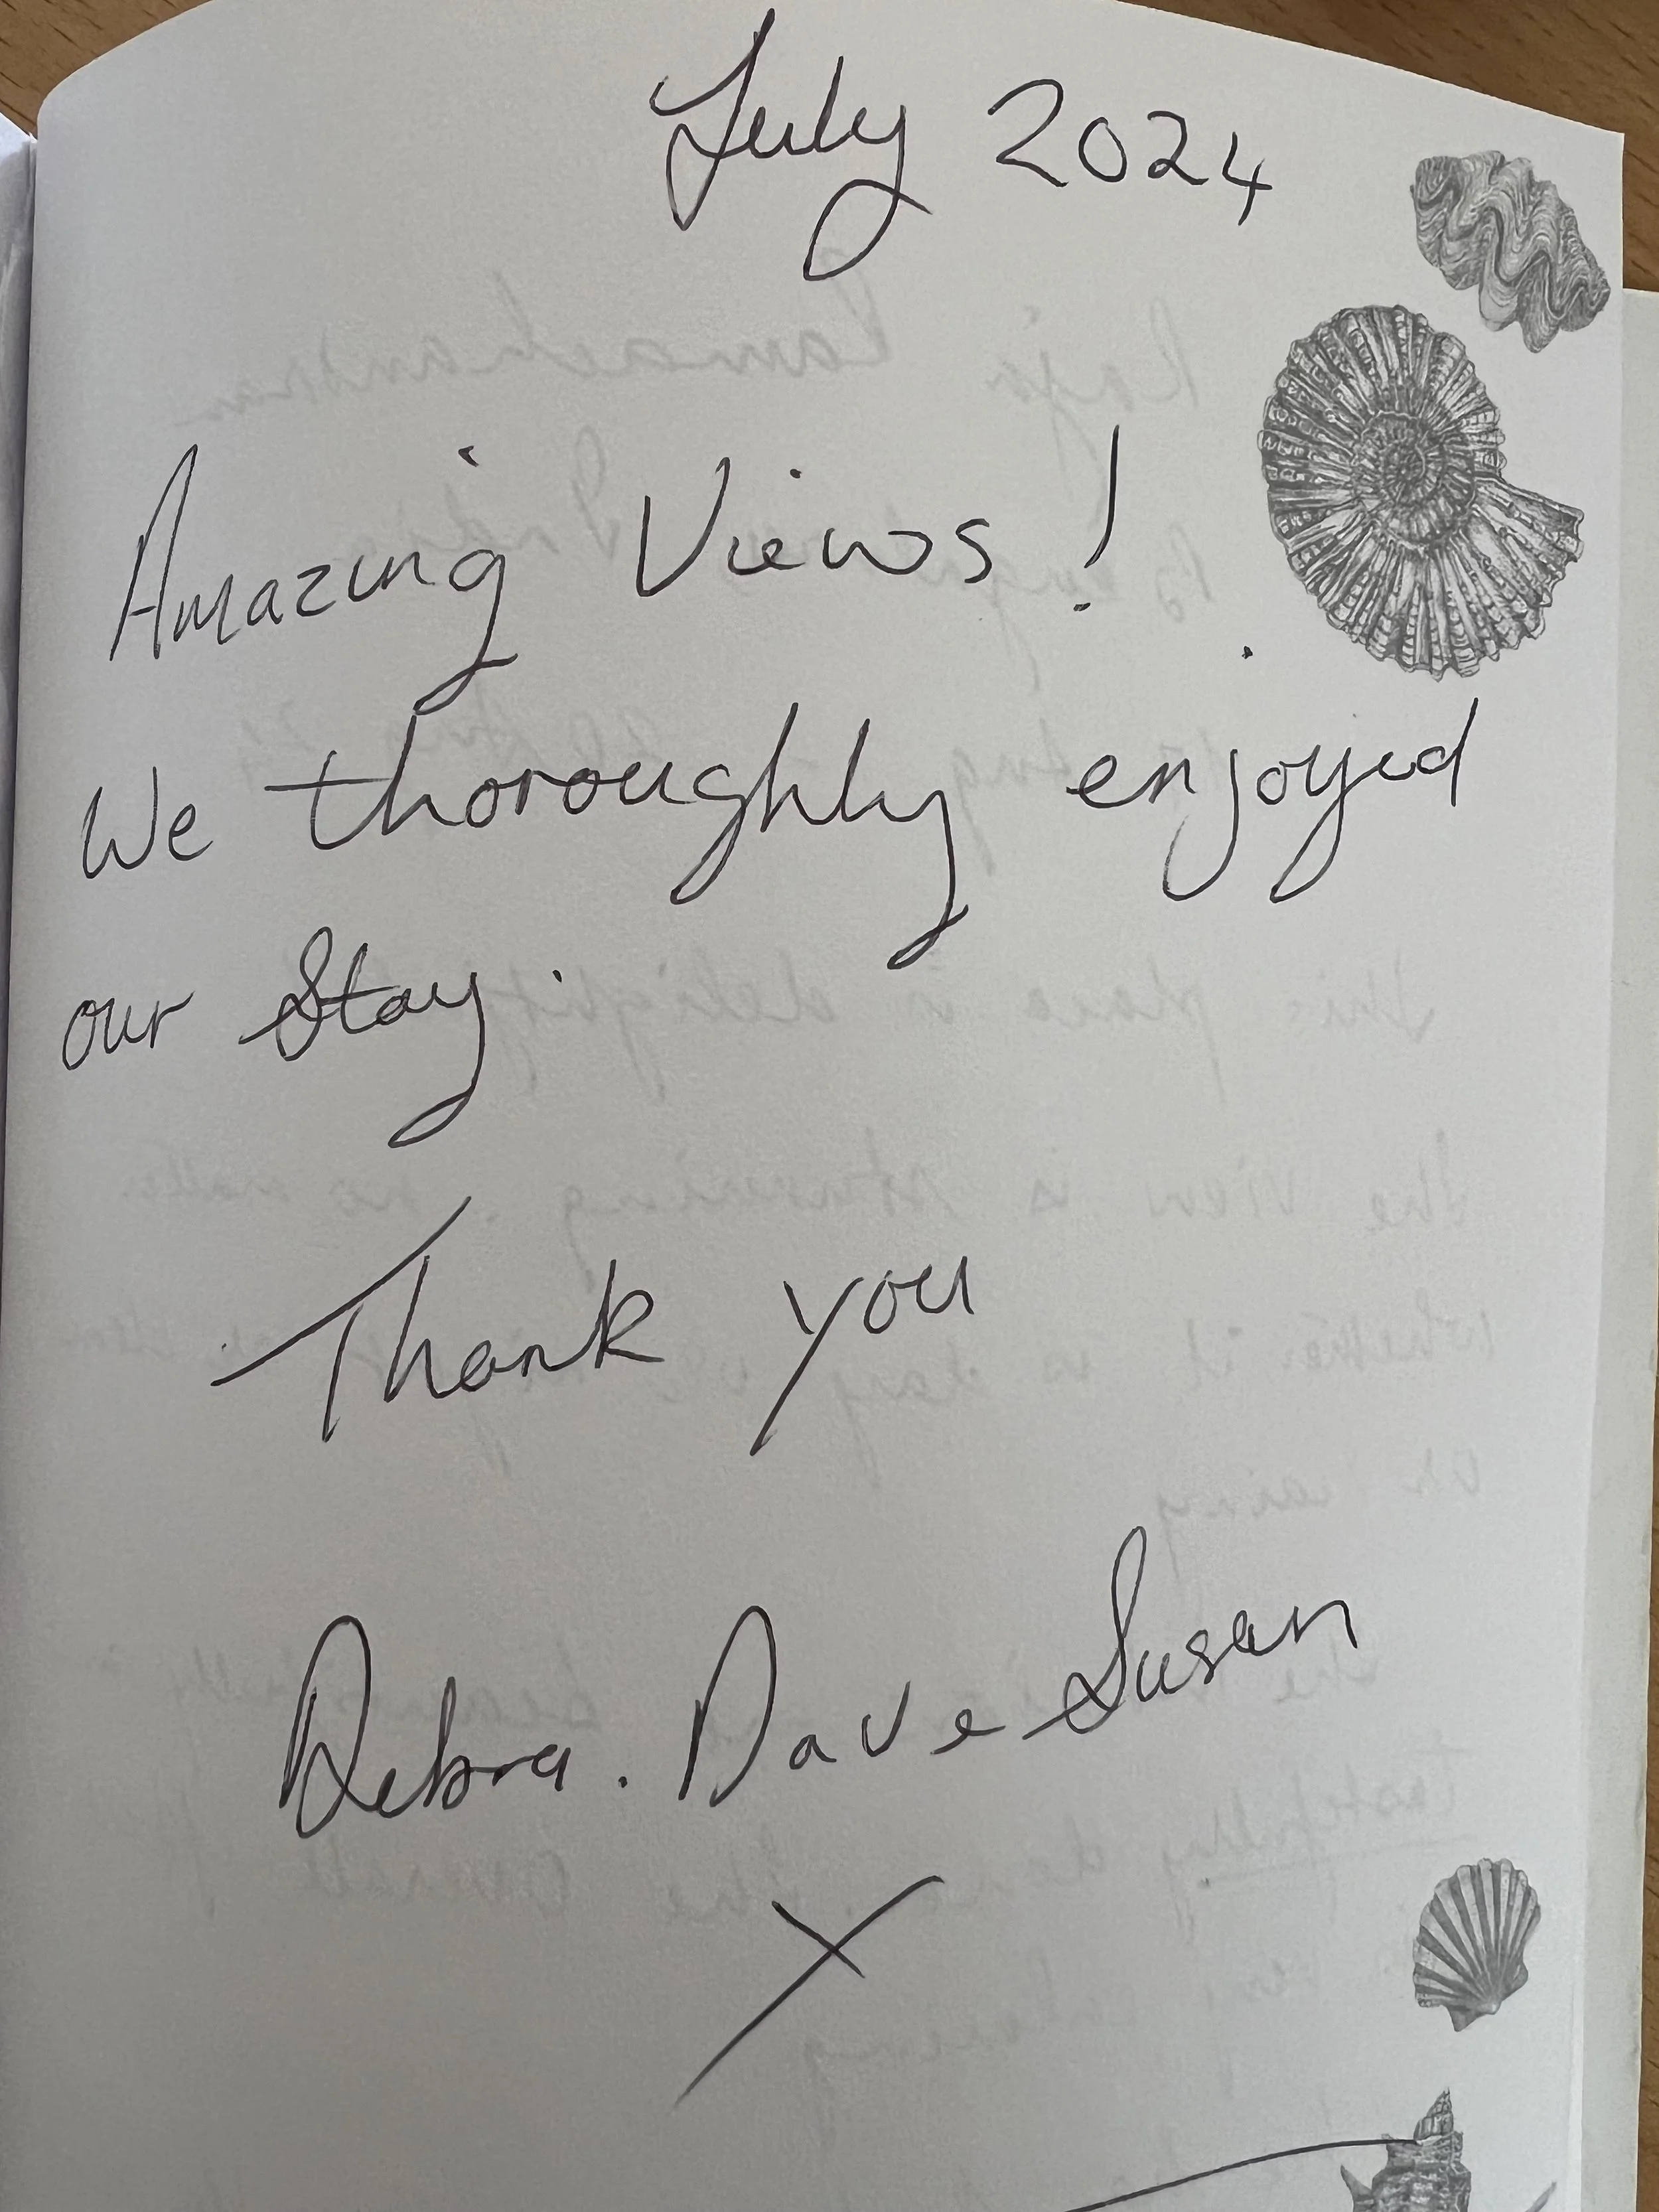 July 2024
Amazing Views!
We thoroughly enjoyed
our Stay.
Thank you
Debra. Dave Susan
X